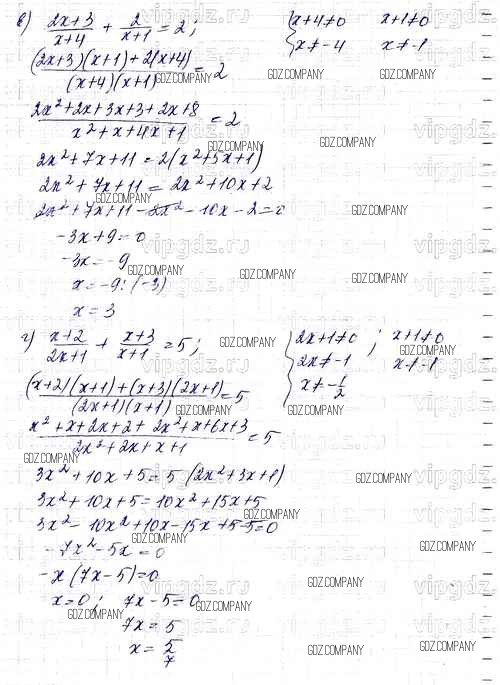 в) (2x+3)/(x+4) + 2/(x+1) = 2; { x+4≠0 x+1≠0
x≠-4 x≠-1
((2x+3)(x+1)+2(x+4))/((x+4)(x+1)) = 2
(2x²+2x+3x+3+2x+8)/(x²+x+4x+1) = 2
2x²+7x+11=2(x²+5x+1)
2x²+7x+11=2x²+10x+2
2x²+7x+11-2x²-10x-2=0
-3x+9=0
-3x=-9
x=-9:(-3)
x=3
г) (x+2)/(2x+1) + (x+3)/(x+1) = 5; { 2x+1≠0 ; x+1≠0
2x≠-1 x≠-1
x≠-1/2
((x+2)(x+1)+(x+3)(2x+1))/((2x+1)(x+1)) = 5
(x²+x+2x+2+2x²+x+6x+3)/(2x²+2x+x+1) = 5
3x²+10x+5=5(2x²+3x+1)
3x²+10x+5=10x²+15x+5
3x²-10x²+10x-15x+5-5=0
-7x²-5x=0
-x(7x-5)=0
x=0; 7x-5=0
7x=5
x=5/7
GDZ.COMPANY
vipgdz.ru